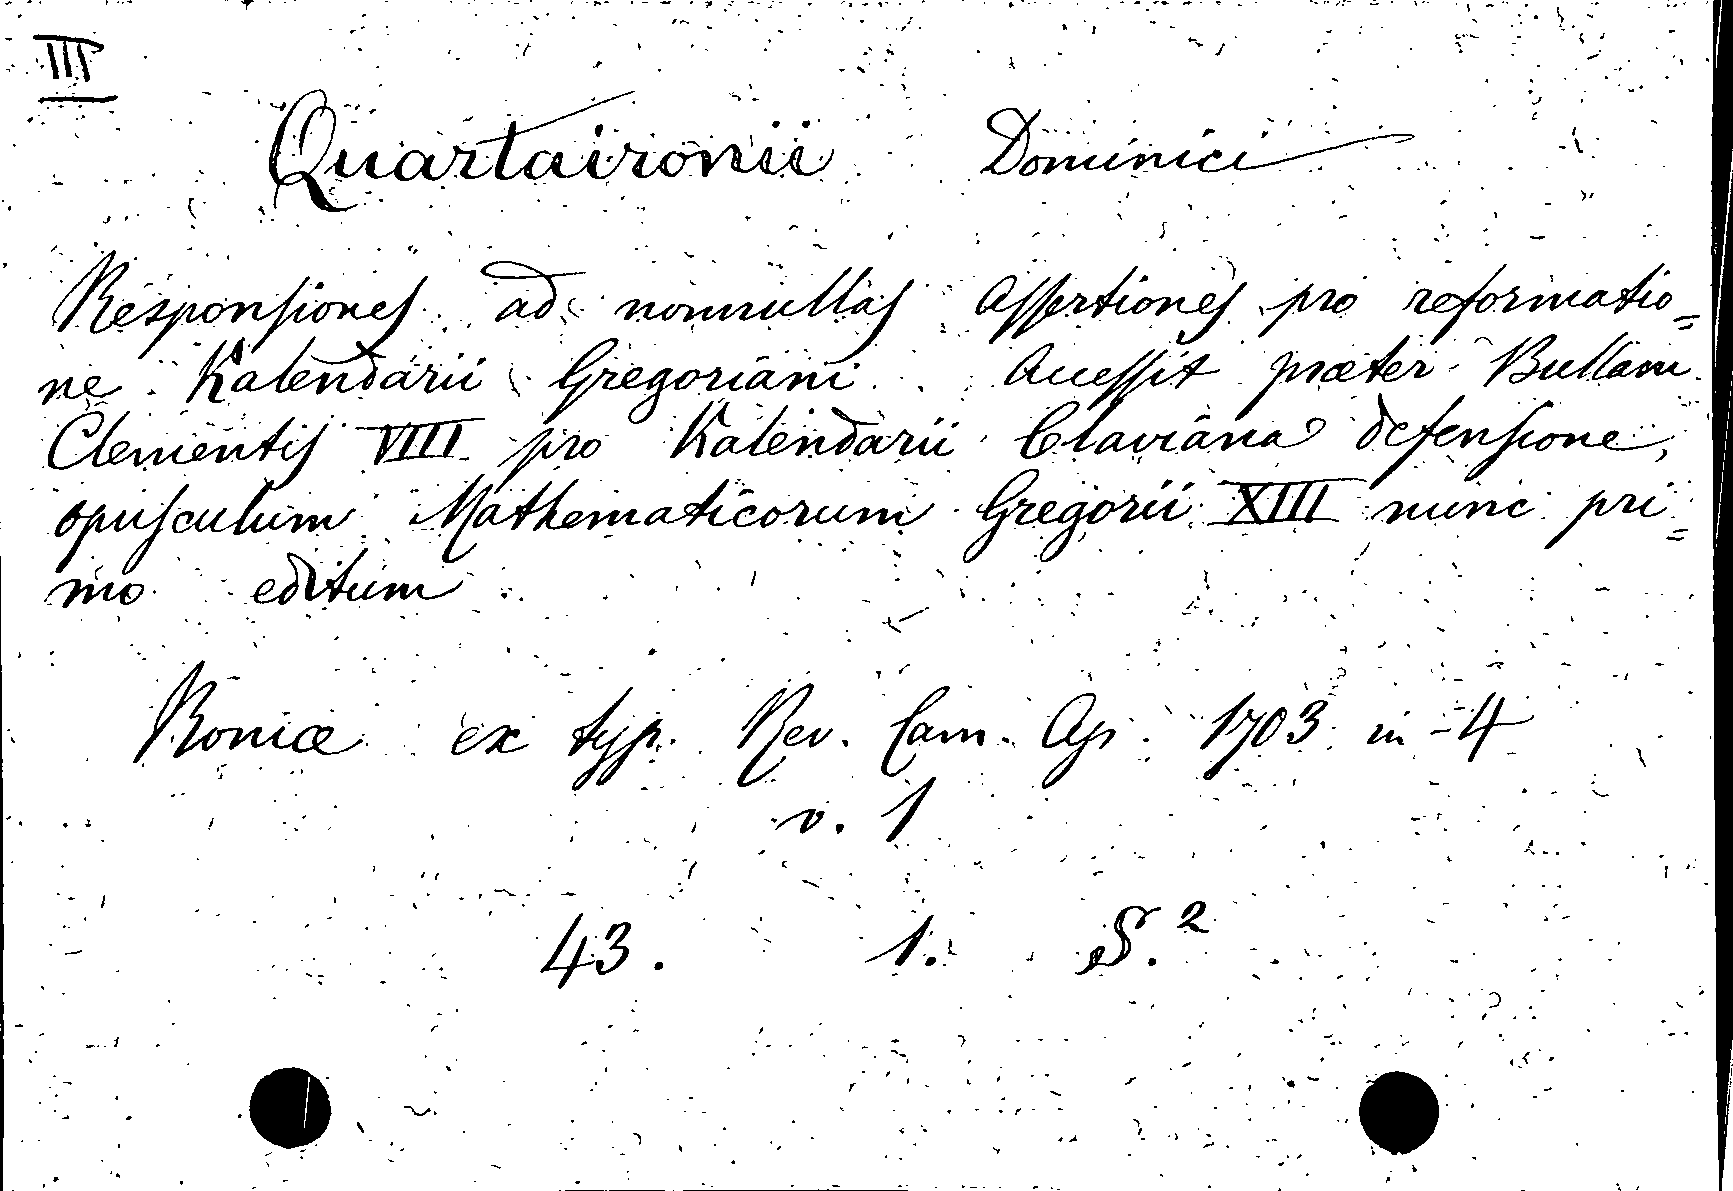 III
Quartaironii Dominici
Responsiones ad nonnullas assertiones pro reformatio=
ne Kalendarii Gregoriani. Accessit præter Bullam
Clementis VIII pro Kalendarii Claviana defensione,
opusculum Mathematicorum Gregorii XIII nunc pri=
mo editum
Romæ ex typ. Rev. Cam. Ap. 1703 in-4
v. 1
43. 1. S.²